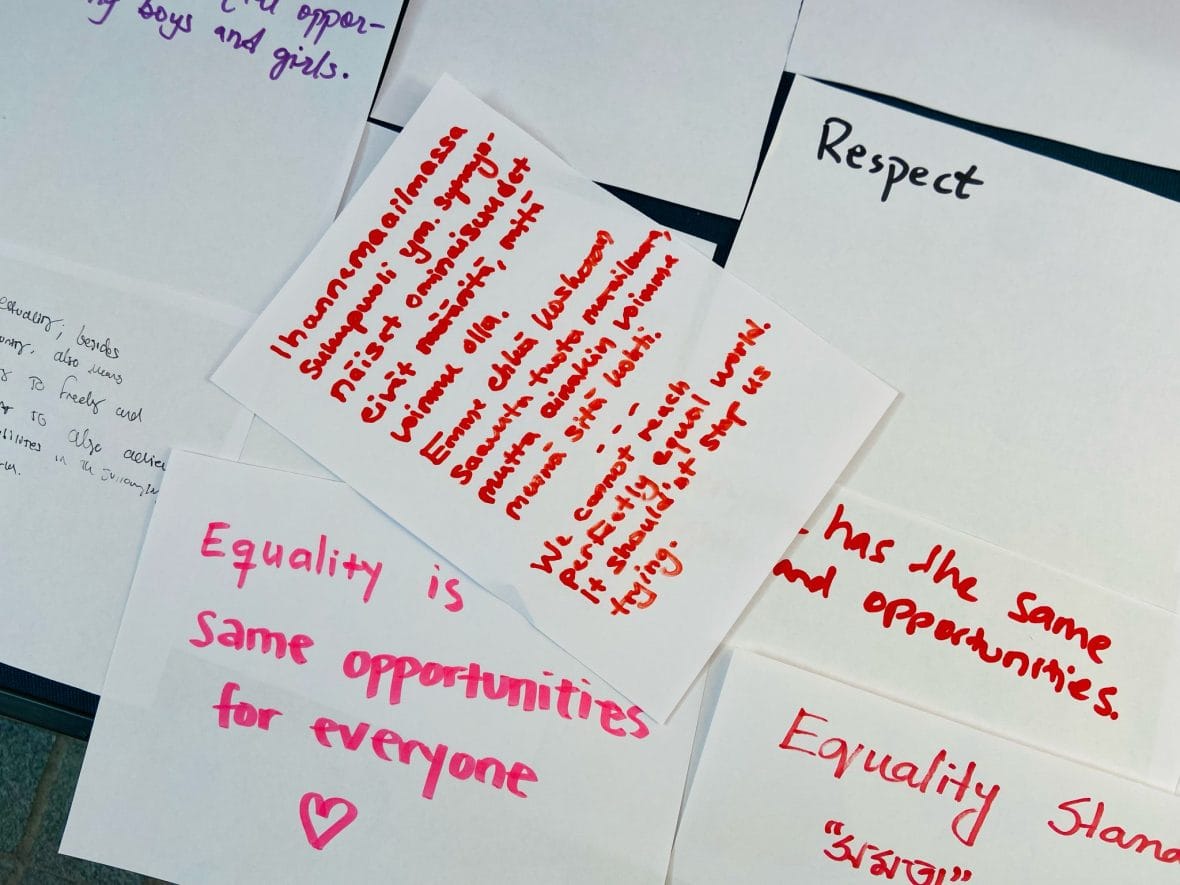 oppor-
boys and girls.
Respect
Ihannemaailmassa
sukupuoli ym. synnyn-
näiset ominaisuudet
eivät määritä, mitä
voimme olla.
Emme ehkä koskaan
saavuta tuota maailmaa,
mutta ainakin voimme
mennä sitä kohti.
We cannot reach
perfectly equal world.
It should'nt stop us
trying.
besides
also means
to freely and
to also achieve
in the
Equality is
same opportunities
for everyone
has the same
and opportunities.
Equality Stand
"সমতা"